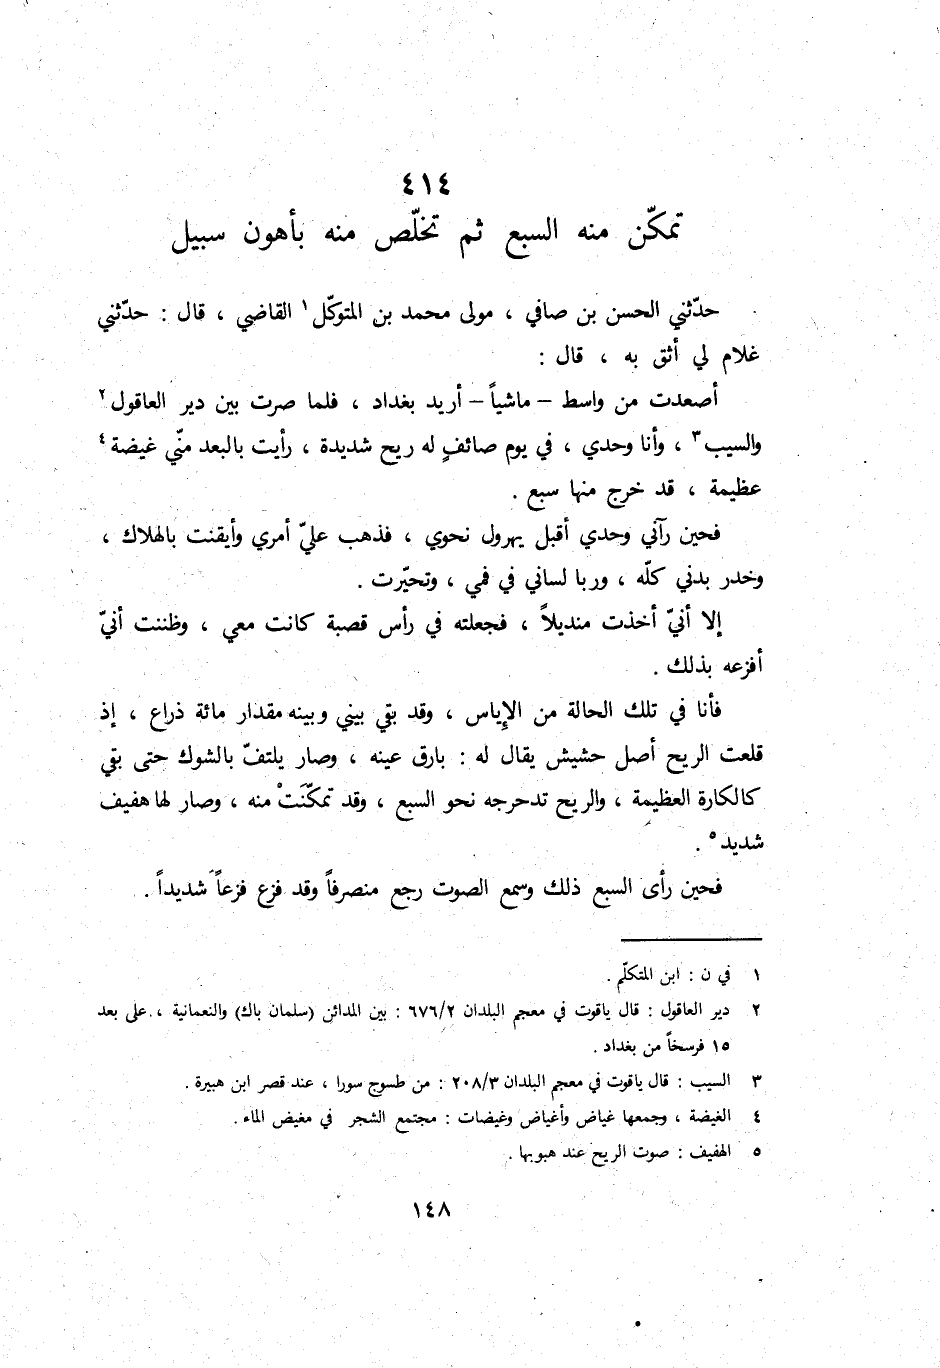 ٤١٤
تمكّن منه السبع ثم تخلّص منه بأهون سبيل
حدّثني الحسن بن صافي ، مولى محمد بن المتوكّل١ القاضي ، قال : حدّثني
غلام لي أثق به ، قال :
أصعدت من واسط – ماشياً – أريد بغداد ، فلما صرت بين دير العاقول٢
والسيب٣ ، وأنا وحدي ، في يوم صائفٍ له ريح شديدة ، رأيت بالبعد منّي غيضة٤
عظيمة ، قد خرج منها سبع .
فحين رآني وحدي أقبل يهرول نحوي ، فذهب عليّ أمري وأيقنت بالهلاك ،
وخدر بدني كلّه ، وربا لساني في فمي ، وتحيّرت .
إلا أنيّ أخذت منديلاً ، فجعلته في رأس قصبة كانت معي ، وظننت أنيّ
أفزعه بذلك .
فأنا في تلك الحالة من الإياس ، وقد بقي بيني وبينه مقدار مائة ذراع ، إذ
قلعت الريح أصل حشيش يقال له : بارق عينه ، وصار يلتفّ بالشوك حتى بقي
كالكارة العظيمة ، والريح تدحرجه نحو السبع ، وقد تمكّنَتْ منه ، وصار لها هفيف
شديد٥ .
فحين رأى السبع ذلك وسمع الصوت رجع منصرفاً وقد فزع فزعاً شديداً .
١ في ن : ابن المتكلّم .
٢ دير العاقول : قال ياقوت في معجم البلدان ٦٧٦/٢ : بين المدائن (سلمان باك) والنعمانية ، على بعد
١٥ فرسخاً من بغداد .
٣ السيب : قال ياقوت في معجم البلدان ٢٠٨/٣ : من طسوج سورا ، عند قصر ابن هبيرة .
٤ الغيضة ، وجمعها غياض وأغياض وغيضات : مجتمع الشجر في مغيض الماء .
٥ الهفيف : صوت الريح عند هبوبها .
١٤٨